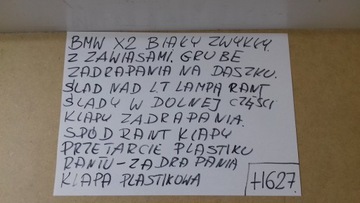 BMW X2 BIAŁY ZWYKŁY
Z ZAWIASAMI. GRUBE
ZADRAPANIA NA DASZKU.
ŚLAD NAD LT LAMPĄ RANT
ŚLADY W DOLNEJ CZĘŚCI
KLAPY ZADRAPANIA.
SPÓD RANT KLAPY
PRZETARCIE PLASTIKU
RANTU-ZADRAPANIA
KLAPA PLASTIKOWA
H627.